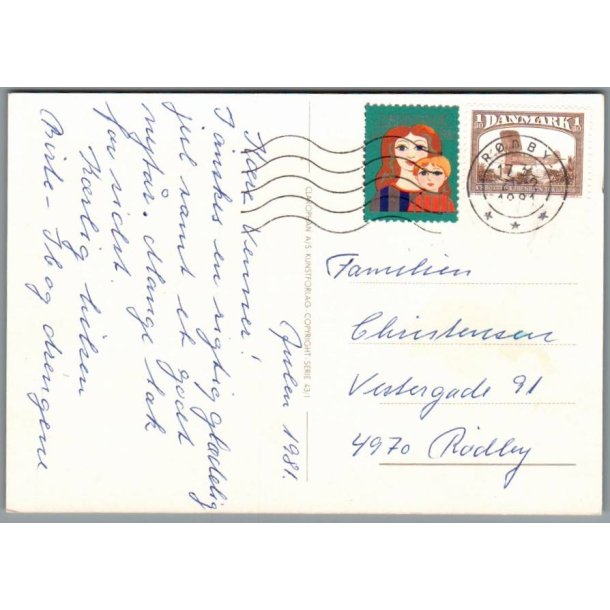 Julen 1981.
Kære venner!
I ønskes en rigtig glædelig
jul samt et godt
nytår. Mange tak
for sidst.
Kærlig hilsen
Birte - Ib og drengene
CLAUSMAN A/S KUNSTFORLAG COPYRIGHT SERIE 43-1
1 DANMARK 1
RØDBY
17.
1981
Familien
Christensen
Vestergade 91
4970 Rødby